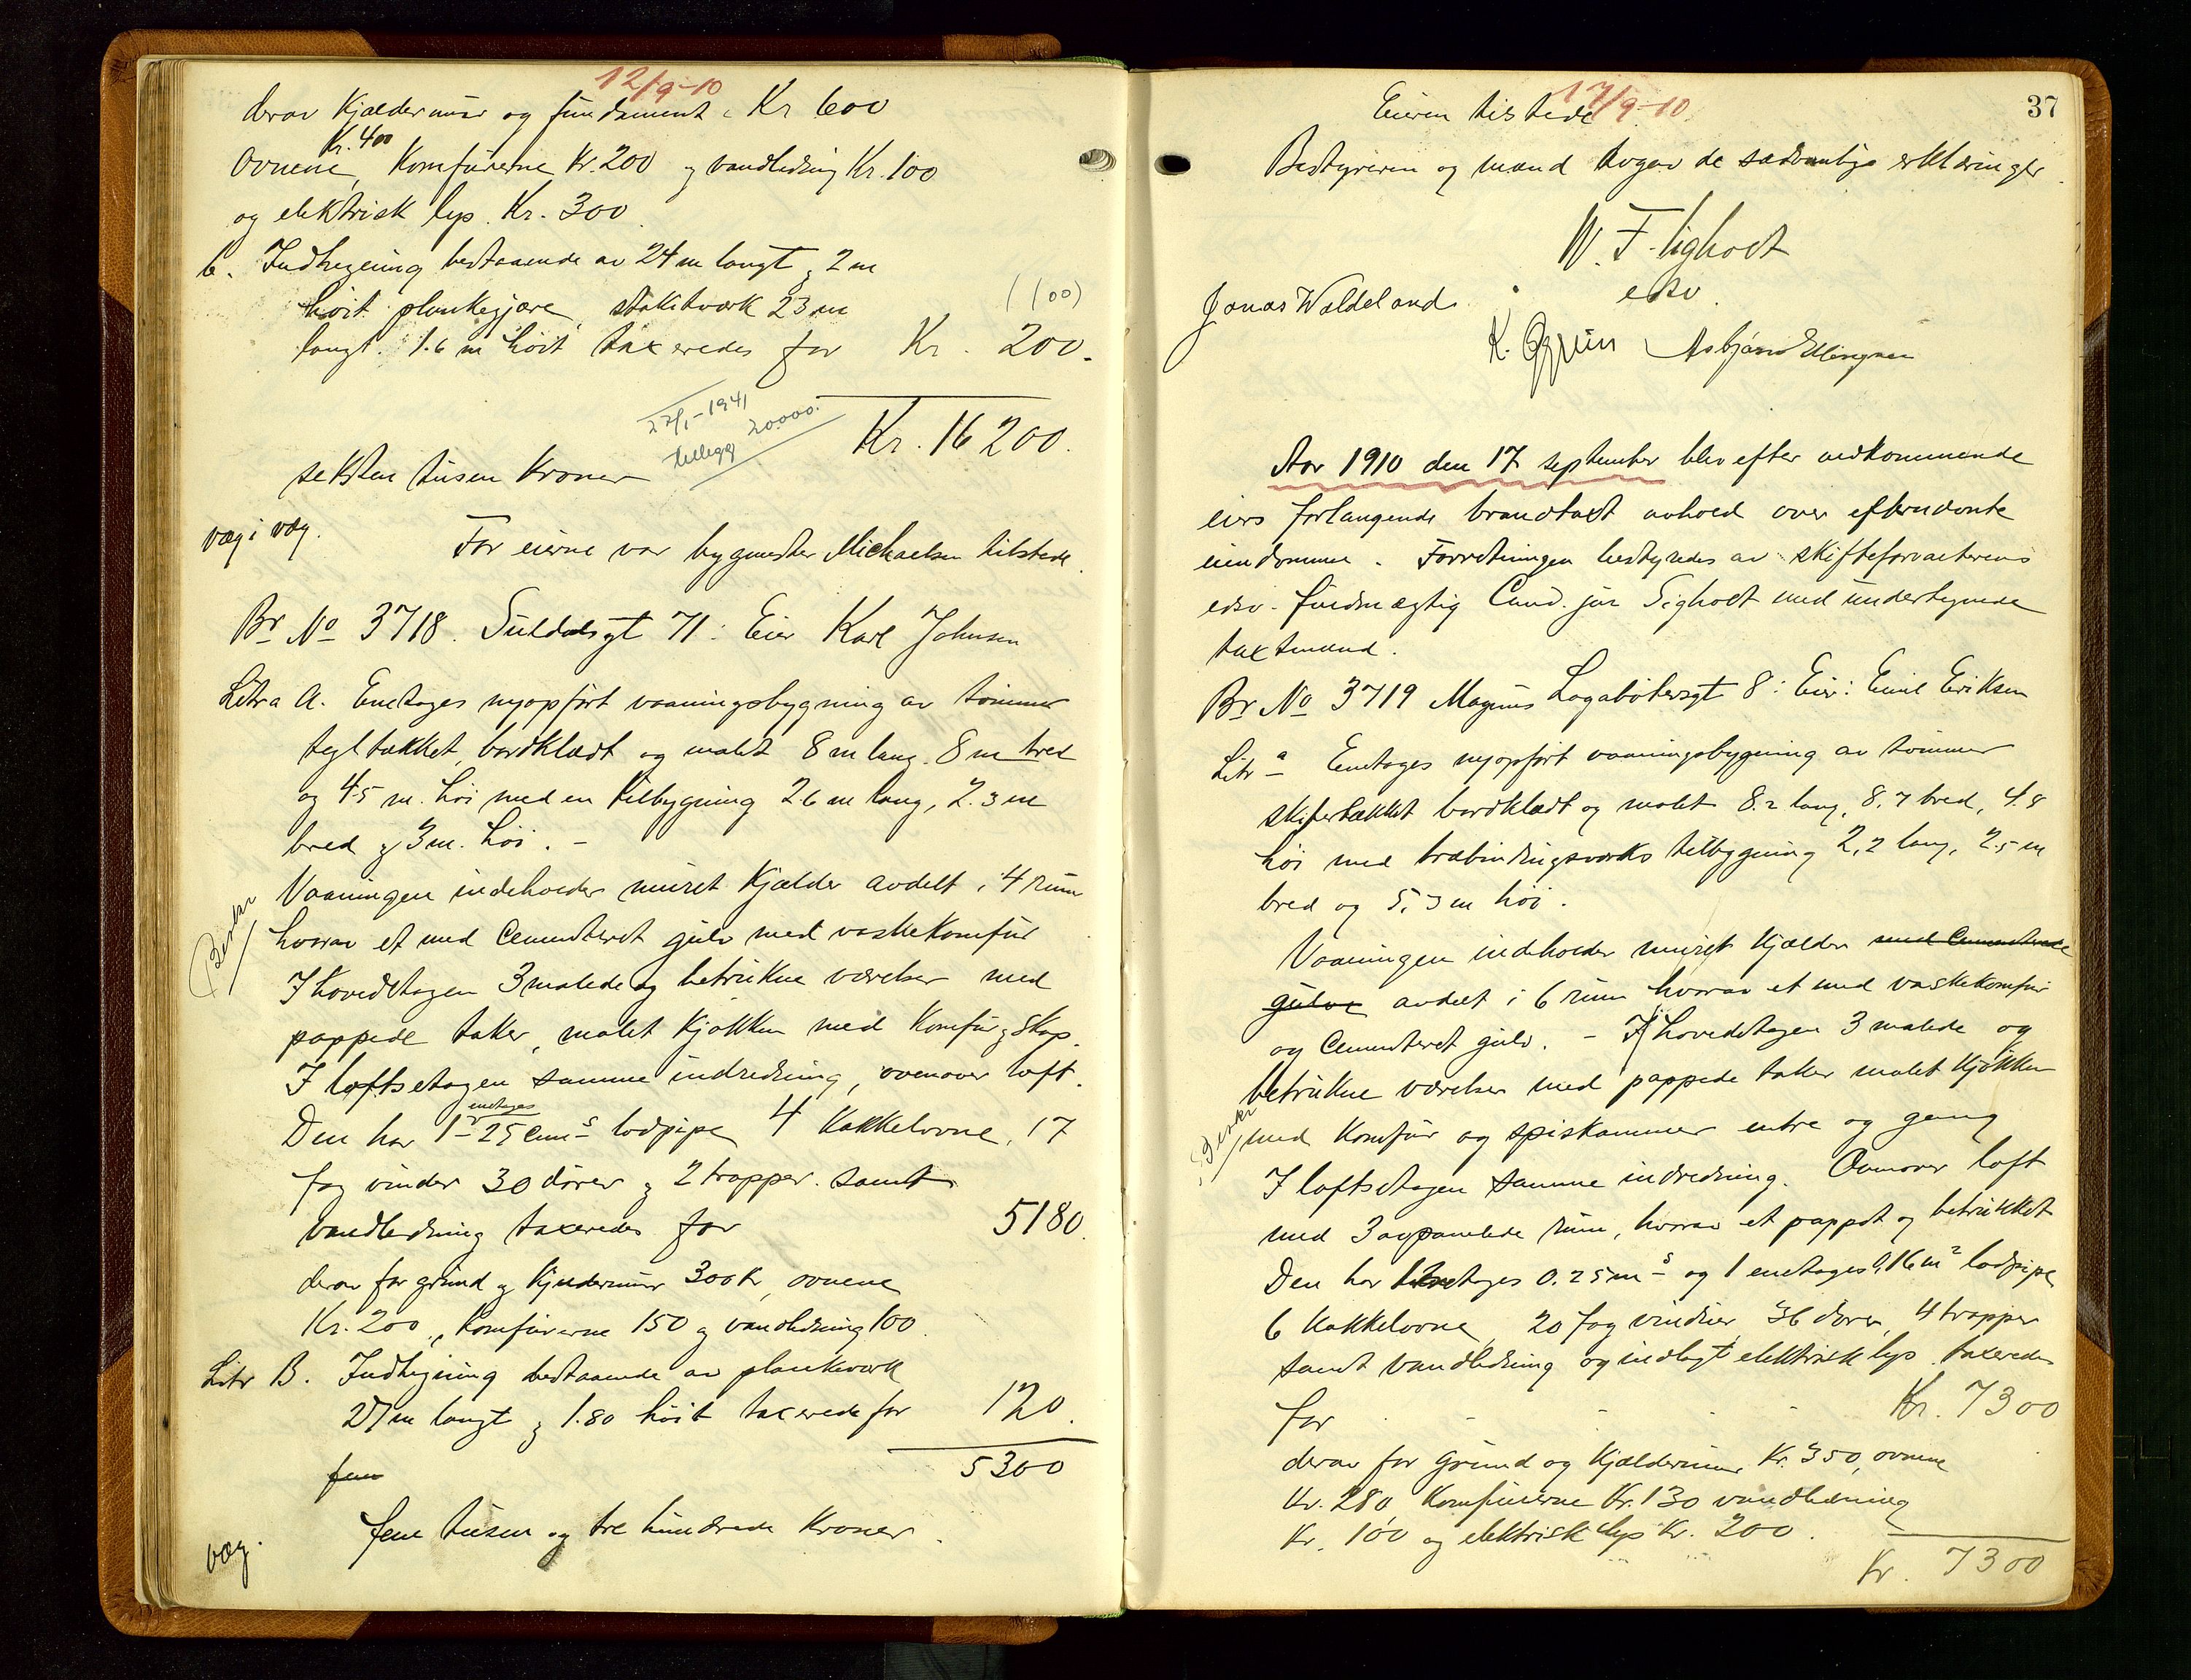 12/9-10
derav Kjældermur og fundament Kr 600
Kr. 400
Ovnene, Komfurerne Kr. 200 og vandledning Kr. 100
og elektrisk lys. Kr. 300
b. Indhegning bestaaende av 24 m langt og 2 m
høit plankegjære, stakitværk 23 m
(100)
langt. 1.6 m høit taxeredes for Kr. 200.-
22/1-1941
tillegg 20000.
Kr. 16 200.
seksten tusen Kroner
væg i væg.
For eierne var bygmester Michaelsen tilstede.
Br. No 3718. Suldalsgt 71: Eier Karl Johnsen
Litra A. Enetages nyopført vaaningsbygning av tømmer
tegltækket, bordklædt og malet 8 m lang. 8 m bred
og 4.5 m. høi med en tilbygning 2.6 m lang, 2.3 m
bred og 3 m. høi. -
Vaaningen indeholder muret Kjælder avdelt i 4 rum
hvorav et med Cementeret gulv med vaskekomfur
I hovedetagen 3 malede og betrukne værelser med
pappede taker, malet Kjøkken med Komfur og Skap.
I loftsetagen samme indredning, ovenover loft.
enetages
Den har 1 25 cm lodpipe 4 Kakkelovne, 17
fag vinder 30 dører og 2 trapper. samt
vandledning taxeredes for 5180.
derav for grund og Kjældermur 300 Kr, ovnene
Kr. 200, Komfurerne 150 og vandledning 100.
Litr B. Indhegning bestaaende av plankeværk
27 m langt og 1.80 høit taxeredes for 120.
5300
fem
fem tusen og tre hundrede Kroner.
væg.
17/9-10
37
Eieren tilstede
Bestyreren og mænd avgav de sædvanlige erklæringer.
W. F. Sigholt
edsv.
Jonas Waldeland
Asbjørn Ellingsen
Aar 1910 den 17 september blev efter vedkommende
eiers forlangende brandtaxt avholdt over efternævnte
eiendomme. Forretningen bestyredes av skifteforvalterens
edsv. fuldmægtig Cand. jur Sigholt med undertegnede
taxtmænd.
Br No 3719 Magnus Lagabøtersgt 8: Eier: Emil Eriksen
Litr a Enetages nyopført vaaningsbygning av tømmer
skifertækket bordklædt og malet 8.2 lang, 8.7 bred, 4.8
høi med træbindingsværks tilbygning 2,2 lang, 2.5 m
bred og 5.3 m høi.
Vaaningen indeholder muret Kjælder med Cementerede
gulve avdelt i 6 rum hvorav et med vaskekomfur
og Cementeret gulv. - I hovedetagen 3 malede og
betrukne værelser med pappede taker malet Kjøkken
med Komfur og spiskammer entre og gang
I loftsetagen samme indredning. Ovenover loft
med 3 avpanelede rum, hvorav et pappet og betrukket
Den har enetages 0.25 m og 1 enetages 0,16 m2 lodpipe
6 Kakkelovne, 20 fag vinduer, 36 dører, 4 trapper
samt vandledning og indlagt elektrisk lys. taxeredes
for Kr. 7300
derav for grund og Kjældermur Kr. 350, ovnene
Kr. 280 Komfurerne Kr. 130 vandledning
Kr. 100 og elektrisk lys Kr. 200.
Kr. 7300